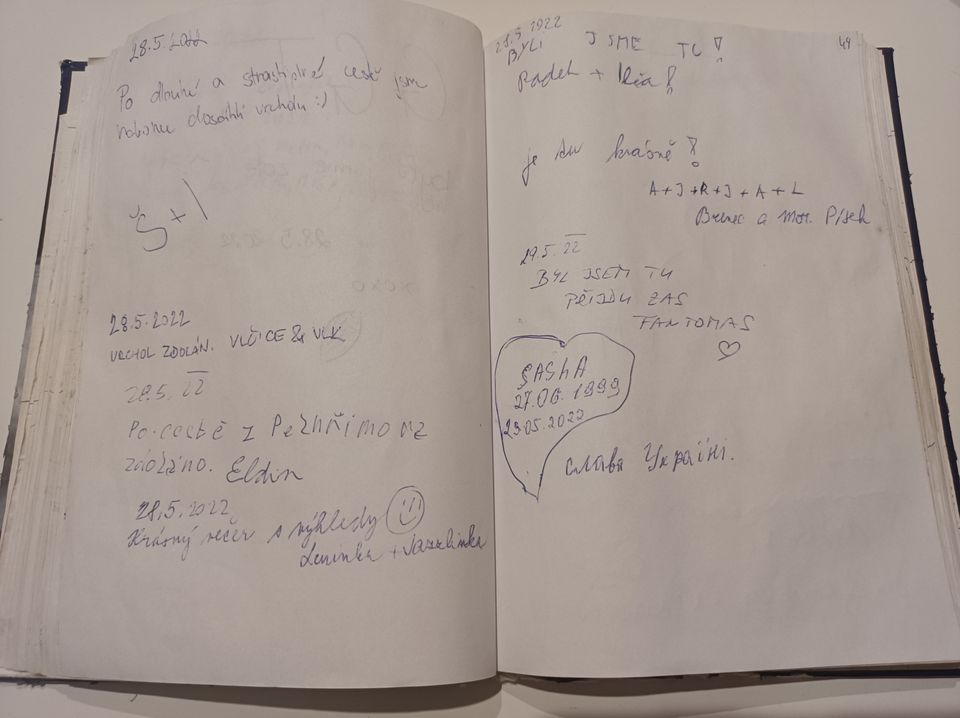 28.5.2022
Po dlouhé a strastiplné cestě jsme
nakonec dosáhli vrcholu :)
Š + J
28.5.2022
VRCHOL ZDOLÁN. VLČICE & VLK
28.5. 22
Po cestě z
zdoláno. Eldin
28.5.2022
Krásný večer s výhledy
Leninka +
29.5.2022
BYLI JSME TU!
49
Radek +
je tu krásně!
A+J+R+J+A+L
a Mor. Písek
29.5. 22
BYL JSEM TU
PŘIJDU ZAS
FANTOMAS
SASHA
27.06.1999
29.05.2022
слава Україні.